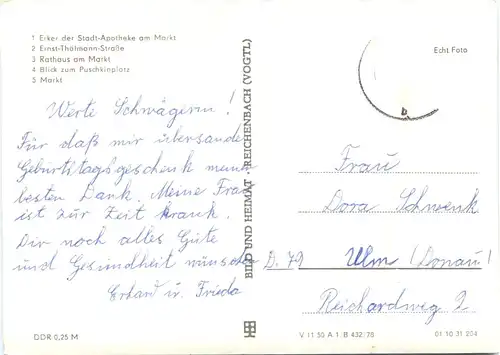 1 Erker der Stadt-Apotheke am Markt
2 Ernst-Thälmann-Straße
3 Rathaus am Markt
4 Blick zum Puschkinplatz
5 Markt
Werte Schwägerin!
Für daß mir übersande
Geburtstagsgeschenk meinen
besten Dank. Meine Frau
ist zur Zeit krank.
Dir noch alles Gute
und Gesundheit wünschen
Erhard u. Frieda
DDR 0,25 M
BILD UND HEIMAT REICHENBACH (VOGTL)
Echt Foto
b
Frau
Dora Schwenk
D. 79 Ulm (Donau)
Reichardweg 2
V 11 50 A 1 B 432/78 01 10 31 204